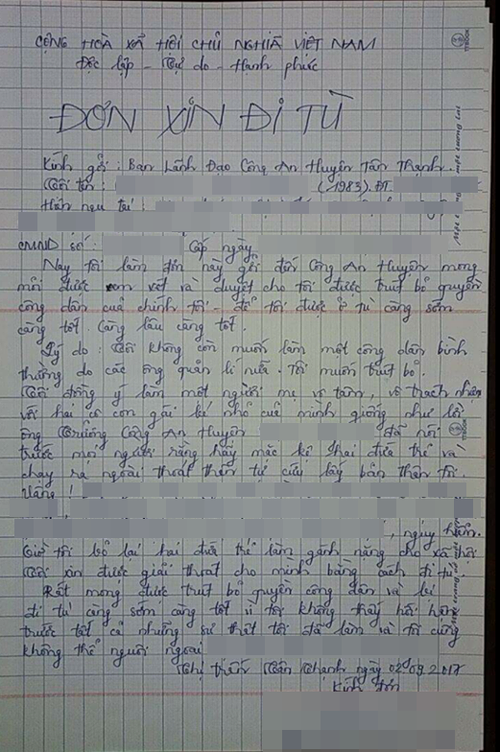 CỘNG HÒA XÃ HỘI CHỦ NGHĨA VIỆT NAM
Độc lập - Tự do - Hạnh phúc
ĐƠN XIN ĐI TÙ
Kính gởi : Ban Lãnh Đạo Công An Huyện Tân Thạnh.
Tôi tên : (1983). ĐT.
Hiện ngụ tại :
CMND số : Cấp ngày
Nay tôi làm đơn này gởi đến Công An Huyện mong
mỏi được xem xét và duyệt cho tôi được trút bỏ quyền
công dân của chính tôi - để tôi được ở tù càng sớm
càng tốt. Càng lâu càng tốt.
Lý do : Tôi không còn muốn làm một công dân bình
thường do các ông quản lí nữa. Tôi muốn trút bỏ.
Tôi đồng ý làm một người mẹ vô tâm, vô trách nhiệm
với hai cô con gái bé nhỏ của mình giống như lời
ông Trưởng Công An Huyện đã nói
trước mọi người rằng hãy mặc kệ hai đứa trẻ và
chạy ra ngoài thoát thân tự cứu lấy bản thân tôi.
Vâng !
, nguy hiểm.
Giờ tôi bỏ lại hai đứa trẻ làm gánh nặng cho xã hội
Tôi xin được giải thoát cho mình bằng cách đi tù.
Rất mong được trút bỏ quyền công dân và
đi tù càng sớm càng tốt vì tôi không thấy hối hận
trước tất cả những sự thật tôi đã làm và tôi cũng
không thể nguôi ngoai
Thị trấn Tân Thạnh ngày 02.09.2017
Kính đơn